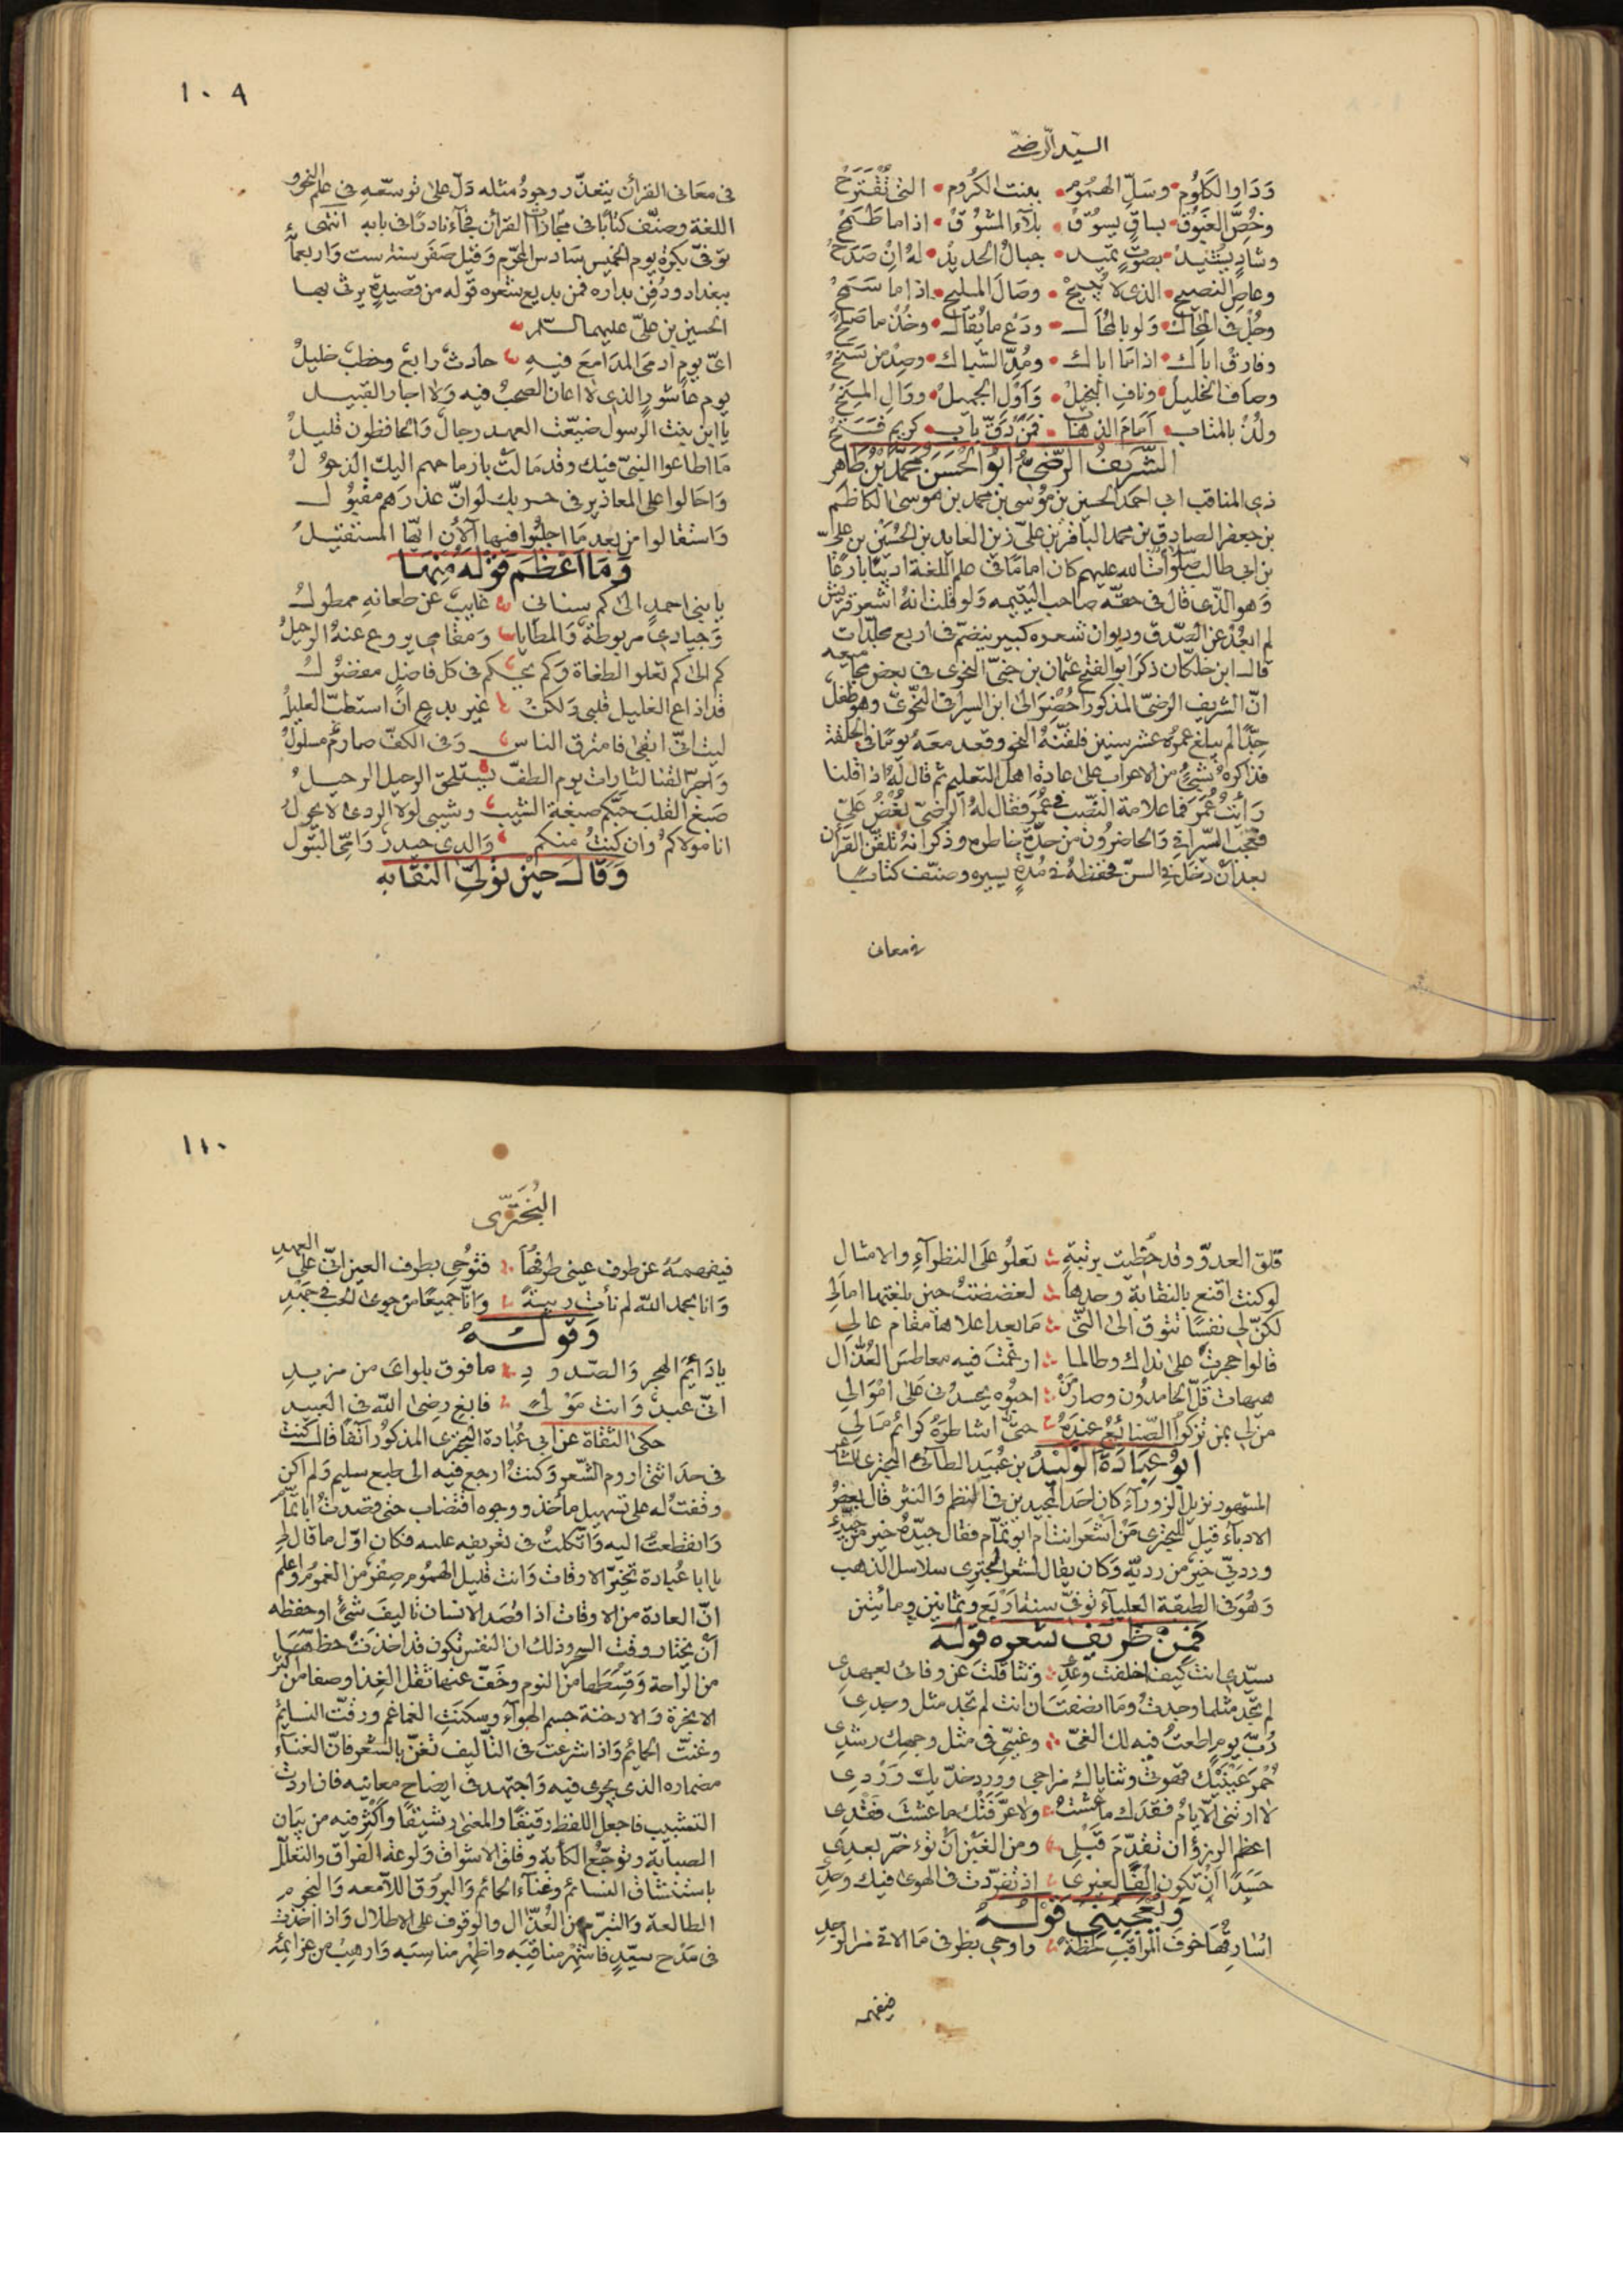 السيّد الرّضىّ
وَدَاوِ الكلُوُم • وسَلِّ الهمُوُم • ببنت الكرُوم • التى تُقْتَرَحْ
وخُصَّ الغَبُوُق • بساقٍ يسوُقْ • بلآء المشوُقْ • اذا ما طَمَحْ
وشادٍ يُشيدْ • بصَوُتٍ تميد • جبالُ الحديدْ • لهُ انْ صَدَحْ
وعاصِ النصيح • الذى لا يُبيحْ • وصَالَ المليح • اذا ما سَمَحْ
وجُلْ فى المِحَال • وَلو بالمحَال • ودَعْ ما يُقال • وخُذ ما صَلحْ
وفارقْ اباك • اذا مَا اباك • ومُدّ الشباك • وصِدْ من سَنَحْ
وصَافِ الخليلْ • ونافِ البخيلْ • وَاَوْلِ الجميلْ • ووالِ المِنَحْ
ولُذْ بالمتاب • اَمَامَ الذهاب • فمَنْ دَقّ باب • كريم فَتَحْ
الشّرَيفُ الرّضىّ اَبُوُ الحْسَنَ مُحَمّدُ بْنُ طاهر
ذى المناقب ابى احمَد الحسين بن موُسى بن محمد بن موسى الكاظم
بن جعفر الصادق بن محمد الباقر بن علىّ زين العابدين بن الحُسَيْن بن علىّ
بن ابى طالب صلَوات الله عليهم كان امامًا فى علم اللغة اديبًا بارعًا
وَهو الذى قال فى حقّه صاحب اليتيمه وَلو قلت انهُ اشعر قريش
لم ابعُدْ عن الصّدق وديوان شعره كبير ينضمّ فى اربع مجلّدات
قال ابن خلكّان ذكرَ ابو الفتح عثمان بن جنىّ النحوى فى بعض مجاميعه
انّ الشريف الرضىّ المذكور اُحْضِرَ الى ابن السيرافى النحّوىّ وهو طفل
جدًّا لم يبلغ عمرُه عشر سنين فلقنّهُ النحو وقعد معَهُ يومًا فى الحلقة
فذاكرهُ بشئٍ من الاعراب على عادة اهل التعليم ثم قال لهُ اذا قلنا
رَأيتُ عُمَرَ فما علامة النصّب فى عُمَر فقال لهُ الرّضىّ بُغْضُ عَلىّ
فعجب السّيرافى والحاضروُن من حدّة خاطره وذكر انهُ تلقّن القرآن
بعد اَنْ دخل فى السنّ فحفظهُ فى مُدّةٍ يسيره وصنّف كتابًا
فى معانى
١٠٩
فى معَانى القرآن يتعذّر وجودُ مثله دَلّ على توسّعهِ فى علم النحو و
اللغة وصَنّف كتابًا فى مجازات القرآن فجآء نادرًا فى بابه انتهى
توفىّ بكرة يوم الخميس سَادس المحرّم وَقيل صَفَر سنة ست وَاربعمآئة
ببغداد ودُفِن بداره فمن بديع شعره قوله من قصيدةٍ يرثى بها
الحسين بن علىّ عليهما السّلام
اىّ يوم ادمَى المدَامعَ فيهِ ؞ حادثٌ رابعٌ وخطبٌ خليلُ
يوم عاشور الذى لا اعان الصحبُ فيه وَلا اجار القبيل
يا ابن بنت الرسول ضيّعت العهد رجالٌ وَالحافظون قليلُ
مَا اطاعوا النبىّ فيك وقد مَالتْ بارماحهم اليك الذحوُلُ
وَاحَالوا على المعاذير فى حربك لوانّ عذرَهم مقبُوُل
وَاستقالوا من بعد مَا اجلبُوا فيها آلآن ايّها المستقيلُ
وَمَا اَعْظَم قَوْلهُ مِنهَا
يا بنى احمدٍ الىٰ كم سنانى ؞ غايبٌ عن طعانهِ ممطولُ
وَجيادى مربوطة وَالمطايا ؞ وَمقامى يروع عَنهُ الدخيلُ
كم الىٰ كم تعلو الطغاة وَكم يحكم فى كل فاضلٍ مفضوُلُ
قد اذاع الغليل قلبى وَلكنْ ؞ غير بدعٍ ان استطبّ العليلُ
ليت انّى ابقى فامترق الناس ؞ وَفى الكفّ صارمٌ مسلولُ
وَاجرّ القنا لثارات يوم الطفّ يستلحق الرعيل الرعيلُ
صَبغ القلبَ حبّكم صبغة الشيب ؞ وشيبى لولا الردى لا يحولُ
انا مولاكمُ وان كنتُ منكم ؞ وَالدى حيدرٌ وَامّى البتول
وَقَالَ حيْن تولىّ النقابه
قلق العدوّ وقد حُظيتُ برتبةٍ ؞ تعلوُ علَى النظرآءِ والامثال
لو كنت اقنع بالنقابة وحدها ؞ لغضضتُ حين بلغتها امالى
لكنّ لى نفسًا تتوق الى التّى ؞ مَا بعد اعلاها مقام عالى
قالوا حجرتَ على نداك وطالما ؞ ارغمتَ فيه معاطسَ العُذّال
هيهات قَلّ الحامدوُن وصار مَنْ ؞ احبُوُه يحسدُنى عَلى امْوَالى
من لى بمن تزكوُا الصّنائعُ عِندَهُ ؞ حتىّ اشاطرَهُ كرائمَ مَالى
اَبوُ عِبَادَة الوَليْدُ بن عُبَيد الطآئى البحترى الشاعر
المشهور نزيل الزورآء كان احَد المجيدين فى النظم وَالنثر قال بعضُ
الادبآء قيل للبحترى مَنْ اَشْعَرُ انت ام ابو تمّام فقال جيّدُهُ خير من جيّدى
ورديّى خير من رديّه وَكان يقال لشعر البحترى سلاسل الذهب
وَهُوَ فى الطبقة العلياء توفىّ سنة اَرْبَع وثمانين ومائتين
فَمِنْ ظريف شعره قوله
سيّدى انت كيف اخلفت وعدى ؞ وَتثاقلتَ عن وفائى بعهدى
لم تجد مثلما وجدتُ وما انصفتَ ان انت لم تجد مثل وجدى
رُبّ يومٍ اطعتُ فيه لك الغىّ ؞ وغيّى فى مثل وجهك رشدى
خُمْرُ عَيْنَيْكَ قهوتى وثناياك مزاجى وورد خدّيك وَرْدى
لا ارتنى الايامُ فقدَك ما عشتُ ؞ ولا عرّفَتْك ما عشتَ فَقْدى
اعظم الرزؤ ان تقدّمَ قَبْلى ؞ ومن الغبْن اَنْ تؤخرّ بعدى
حَسَدًا اَنْ تكون اِلفًا لغيرى ؞ اذ تفرّدت فى الهوى فيك وحدى
وَيُعْجِبُنى قوْلُهُ
اسَارقُها خوف المراقب لحظةً ؞ واوحى بطرفى مَا الاقى من الوجد
فيفهمه
١١٠
البُحْتَرىّ
فيفهمهُ عن طرف عينى طرفُها ؞ فتوُحى بطرف العين انّى على العهد
وَانا بحمد الله لم نأت ريبةً ؞ وَانّا جميعًا من جوى الحُب فى جَهْدِ
وَقولُهُ
يا دَائِمَ الهجر وَالصّدودِ ؞ ما فوق بلواىَ من مزيدِ
انّى عبدٌ وَانت مَوْلىً ؞ فابغ رضى الله فى العبيد
حكى الثقاة عن ابى عُبادة البحترى المذكوُر آنفًا قال كنتُ
فى حدَاثتى اروم الشّعر وَكنتُ ارجع فيه الى طبع سليم وَلم اكن
وقفتُ له على تسهيل مأخذ ووجوه اقتضاب حتى قصدتُ ابا تمّام
وَانقطعتُ اليه وَاتّكلتُ فى تعريفه عليه فكان اوّل ما قال لى
يا ابا عُبادة تخيّر الاوقات وَانت قليل الهمُوُم صِفْرٌ من الغموُم وَاعلَم
انّ العادة من الاوقات اذا قصَد الانسان تاليفَ شئٍ اوحفظه
اَنْ يختار وقت السحر وذلك ان النفس تكون قد اخذَتْ حظّهَا
من الرّاحة وَقِسْطَها من النوم وخَفّ عنها ثقل الغِذا وصفا من اكثر
الابخرة وَالادخنة جسم الهوآء وسكنَتِ الغماغم ورقّت النسائم
وغنّت الحمائم وَاذا شرعتَ فى التأليف تغنّ بالشعر فانّ الغنآء
مضماره الذى يجرى فيه وَاجتهد فى ايضاح معانيه فان اردت
التشبيب فاجعل اللفظ رقيقًا والمعنى رشيقًا وَاكثر فيه من بيان
الصبابة وتوجّع الكآبة وقلق الاشواق وَلوعة الفراق والتعلّل
باستنشاق النسائم وَغنآء الحمائم وَالبروق اللآمعه وَالنجوم
الطالعة وَالتبرّم من العُذّال والوقوف على الاطلال وَاذا اخذتَ
فى مَدْح سيّدٍ فاشهِرْ مناقبَه واظهِرْ مناسبَه وَارهِبْ من عزائمه